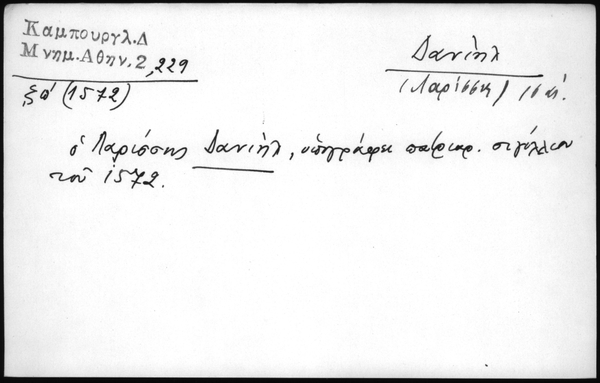 Καμπουργλ.Δ
Μνημ.Αθην.2,229
(1572)
Δανιὴλ
(Λαρίσσης)
ὁ Λαρίσσης Δανιὴλ, ὑπογράφει πατριαρ. σιγίλλιον
τοῦ 1572.